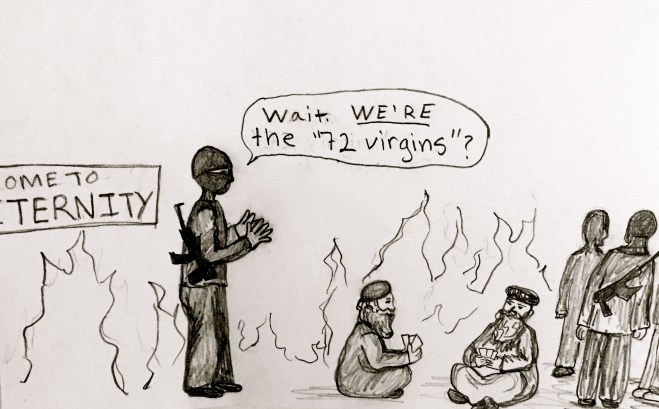 Wait. WE'RE
the "72 virgins"?
OME TO
ETERNITY